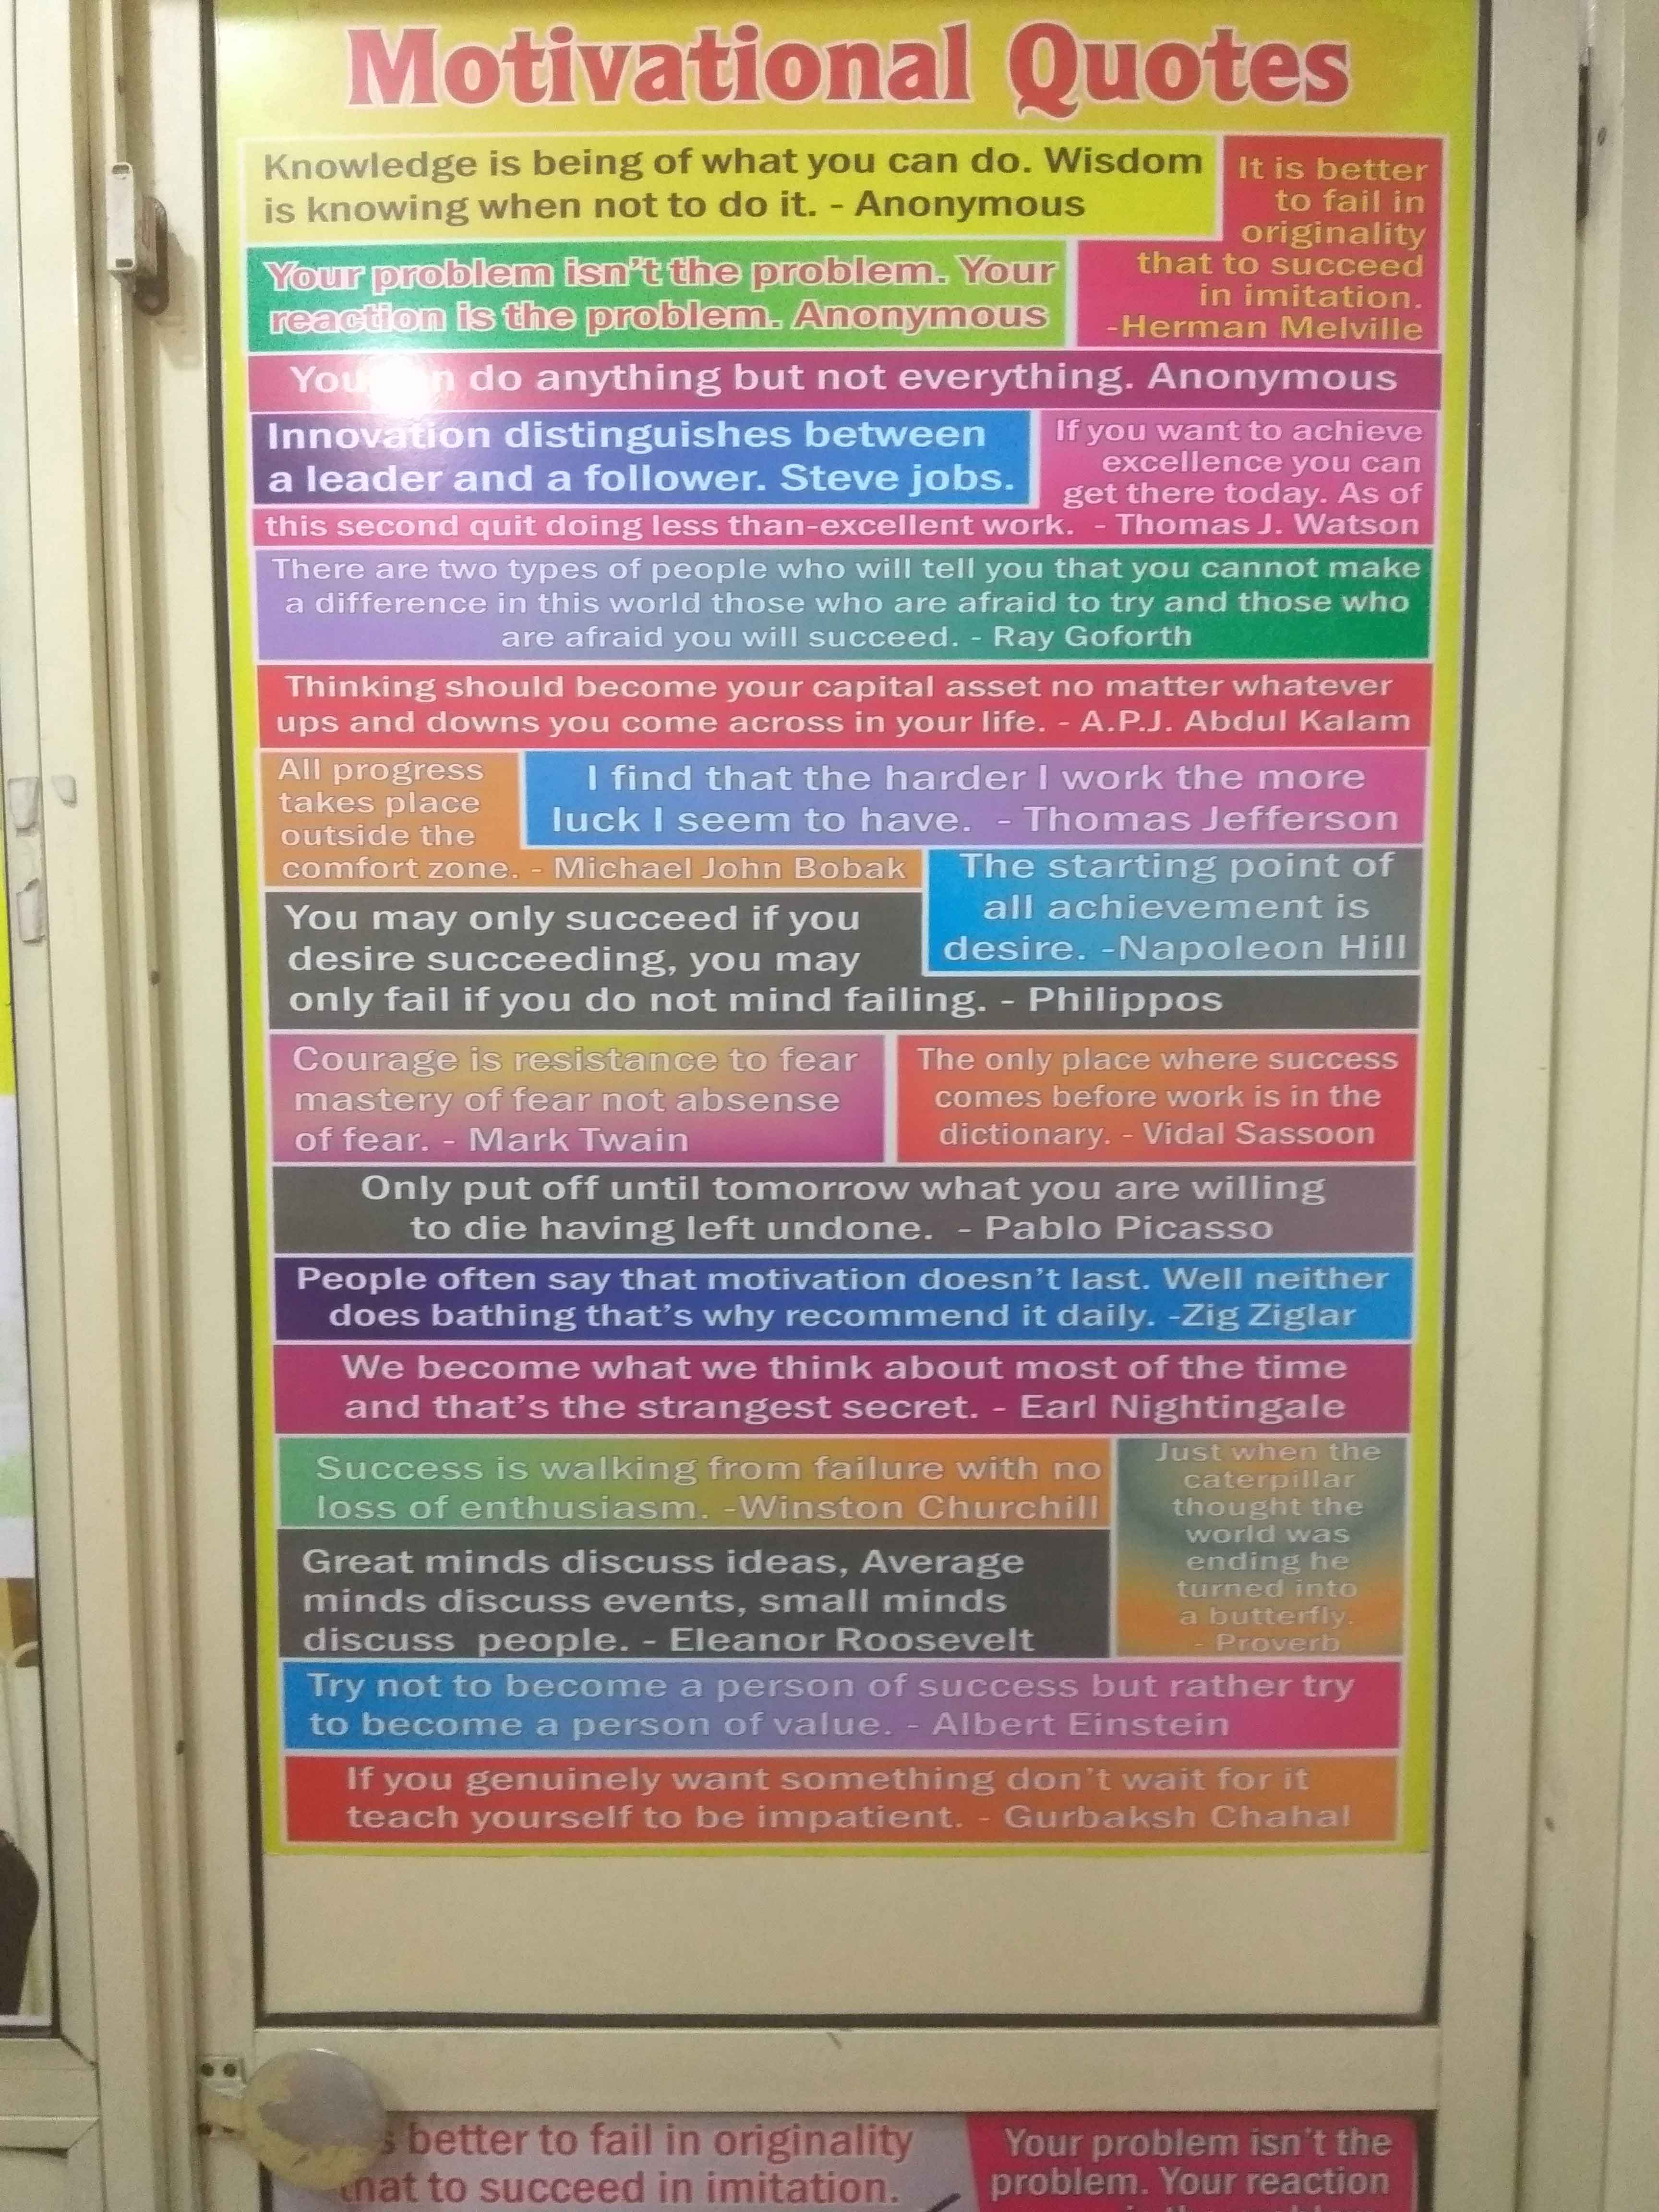 Motivational Quotes
Knowledge is being of what you can do. Wisdom
is knowing when not to do it. - Anonymous
It is better
to fail in
originality
that to succeed
in imitation.
-Herman Melville
Your problem isn't the problem. Your
reaction is the problem. Anonymous
You do anything but not everything. Anonymous
Innovation distinguishes between
a leader and a follower. Steve jobs.
If you want to achieve
excellence you can
get there today. As of
this second quit doing less than-excellent work. - Thomas J. Watson
There are two types of people who will tell you that you cannot make
a difference in this world those who are afraid to try and those who
are afraid you will succeed. - Ray Goforth
Thinking should become your capital asset no matter whatever
ups and downs you come across in your life. - A.P.J. Abdul Kalam
All progress
takes place
outside the
comfort zone. - Michael John Bobak
I find that the harder I work the more
luck I seem to have. - Thomas Jefferson
The starting point of
all achievement is
desire. -Napoleon Hill
You may only succeed if you
desire succeeding, you may
only fail if you do not mind failing. - Philippos
Courage is resistance to fear
mastery of fear not absense
of fear. - Mark Twain
The only place where success
comes before work is in the
dictionary. - Vidal Sassoon
Only put off until tomorrow what you are willing
to die having left undone. - Pablo Picasso
People often say that motivation doesn't last. Well neither
does bathing that's why recommend it daily. -Zig Ziglar
We become what we think about most of the time
and that's the strangest secret. - Earl Nightingale
Success is walking from failure with no
loss of enthusiasm. -Winston Churchill
Just when the
caterpillar
thought the
world was
ending he
turned into
a butterfly.
- Proverb
Great minds discuss ideas, Average
minds discuss events, small minds
discuss people. - Eleanor Roosevelt
Try not to become a person of success but rather try
to become a person of value. - Albert Einstein
If you genuinely want something don't wait for it
teach yourself to be impatient. - Gurbaksh Chahal
better to fail in originality
that to succeed in imitation.
Your problem isn't the
problem. Your reaction